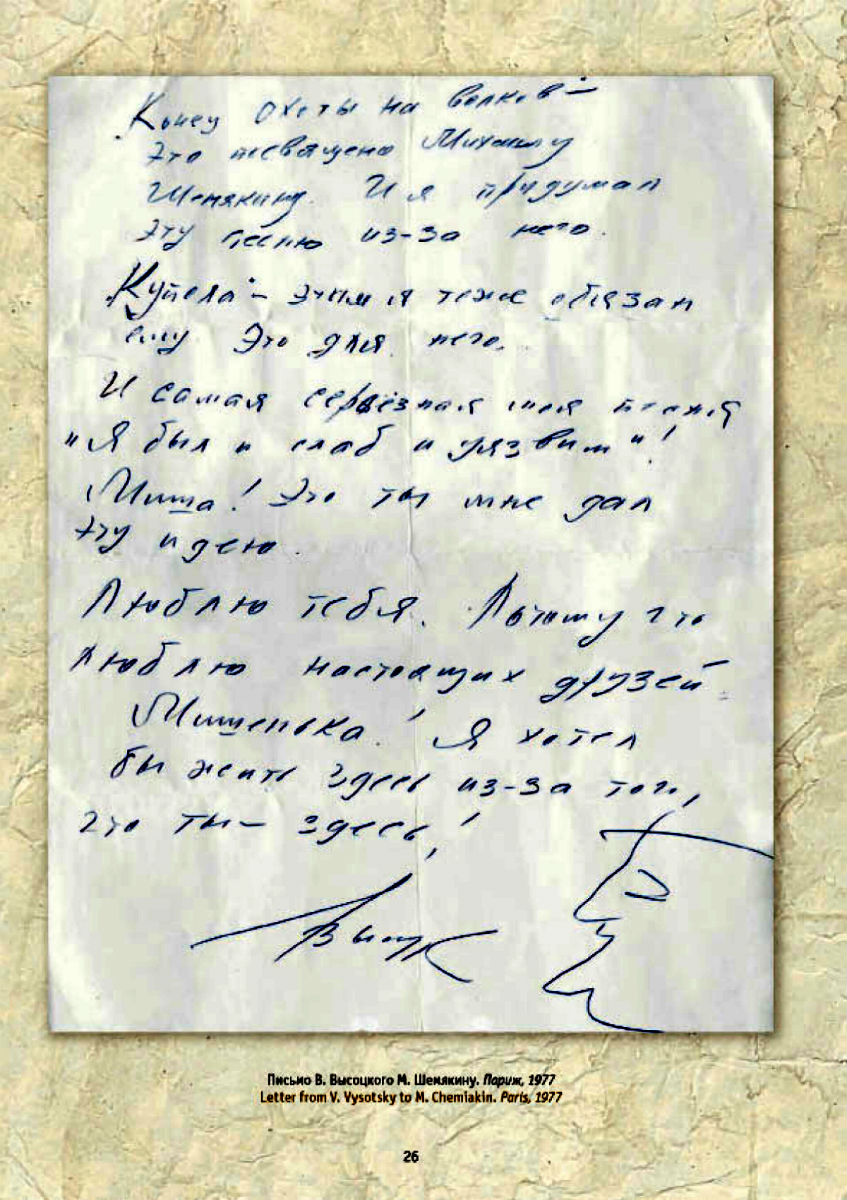 Конец охоты на волков" —
Это посвящено Михаилу
Шемякину. И я придумал
Эту песню из-за него.
"Купола" — этим я тоже обязан
ему. Это для него.
И самая серьёзная моя песня
"Я был и слаб и уязвим"!
Миша! Это ты мне дал
Эту идею.
Люблю тебя. Потому что
люблю настоящих друзей.
Мишенька! Я хотел
бы жить здесь из-за того,
что ты — здесь!
Письмо В. Высоцкого М. Шемякину. Париж, 1977
Letter from V. Vysotsky to M. Chemiakin. Paris, 1977
26